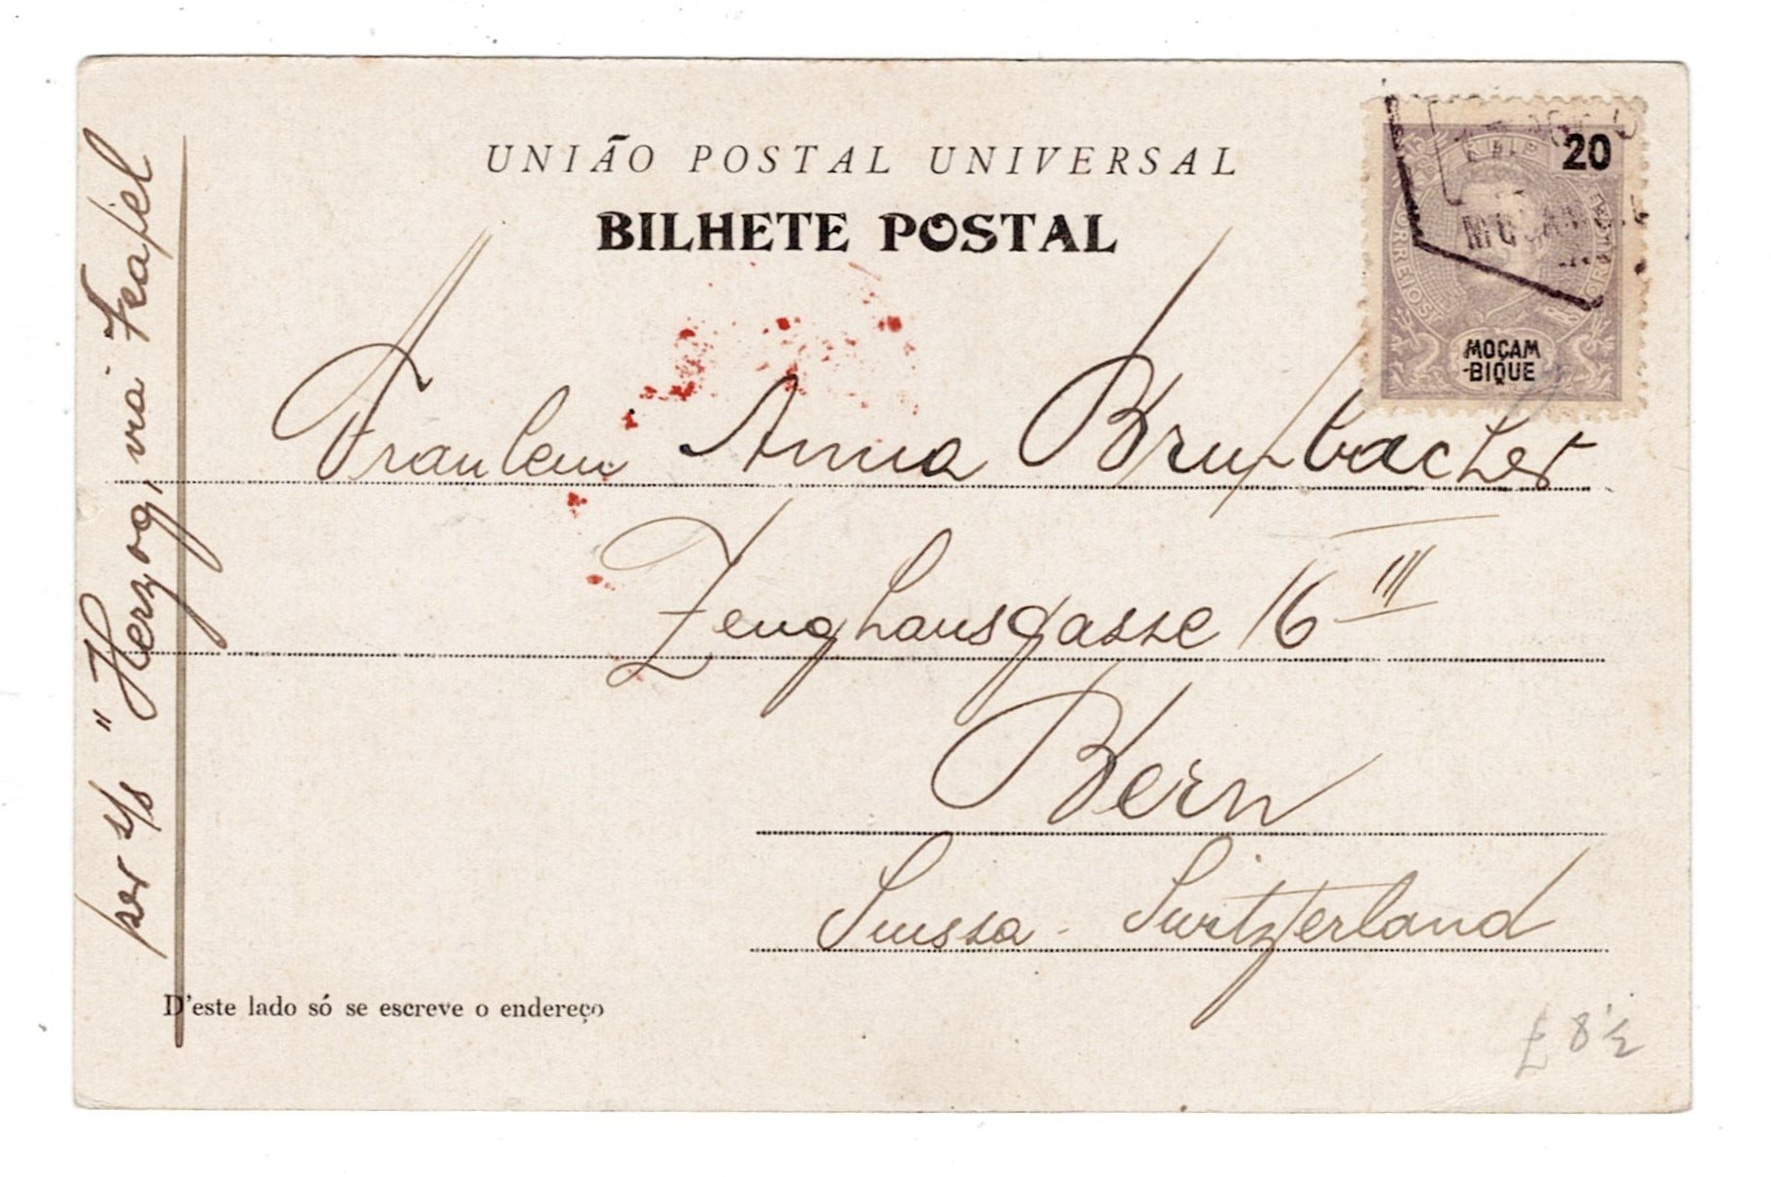 UNIÃO POSTAL UNIVERSAL
BILHETE POSTAL
20
CORREIOS
MOÇAM
-BIQUE
Fraulein Anna Brupbacher
Zeughausgasse 16 III
Bern
Suissa - Switzerland
per s/s "Herzog, via Neapel
D'este lado só se escreve o endereço
£ 8 1/2